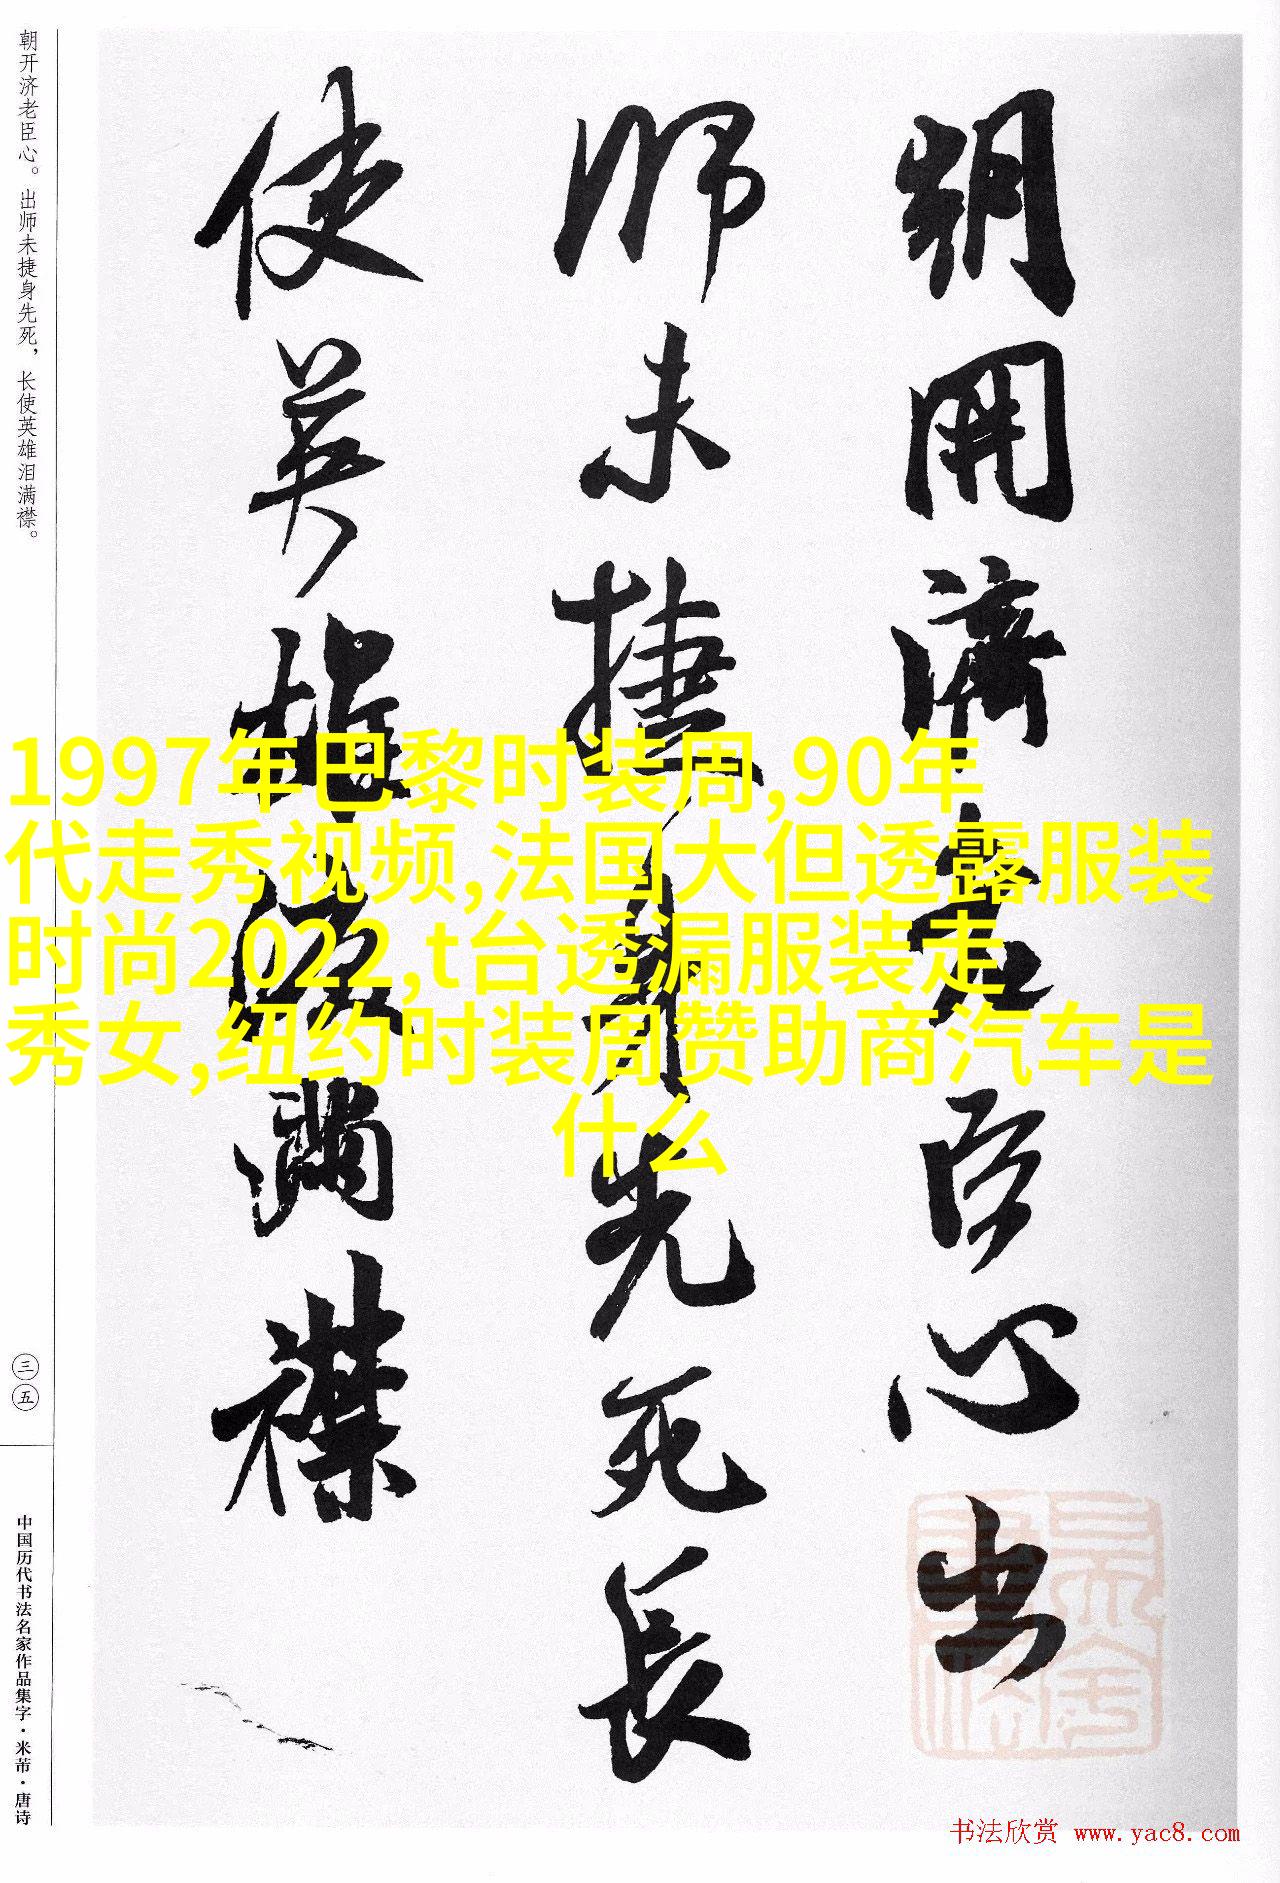 朝開濟老臣心出
師未捷身先死長
使英雄淚滿襟
朝开济老臣心。出师未捷身先死，长使英雄泪满襟。
三五
中国历代书法名家作品集字·米芾·唐诗
1997年巴黎时装周,90年
代走秀视频,法国大但透露服装
时尚2022,t台透漏服装走
秀女,纽约时装周赞助商汽车是
什么
书法欣赏 www.yac8.com